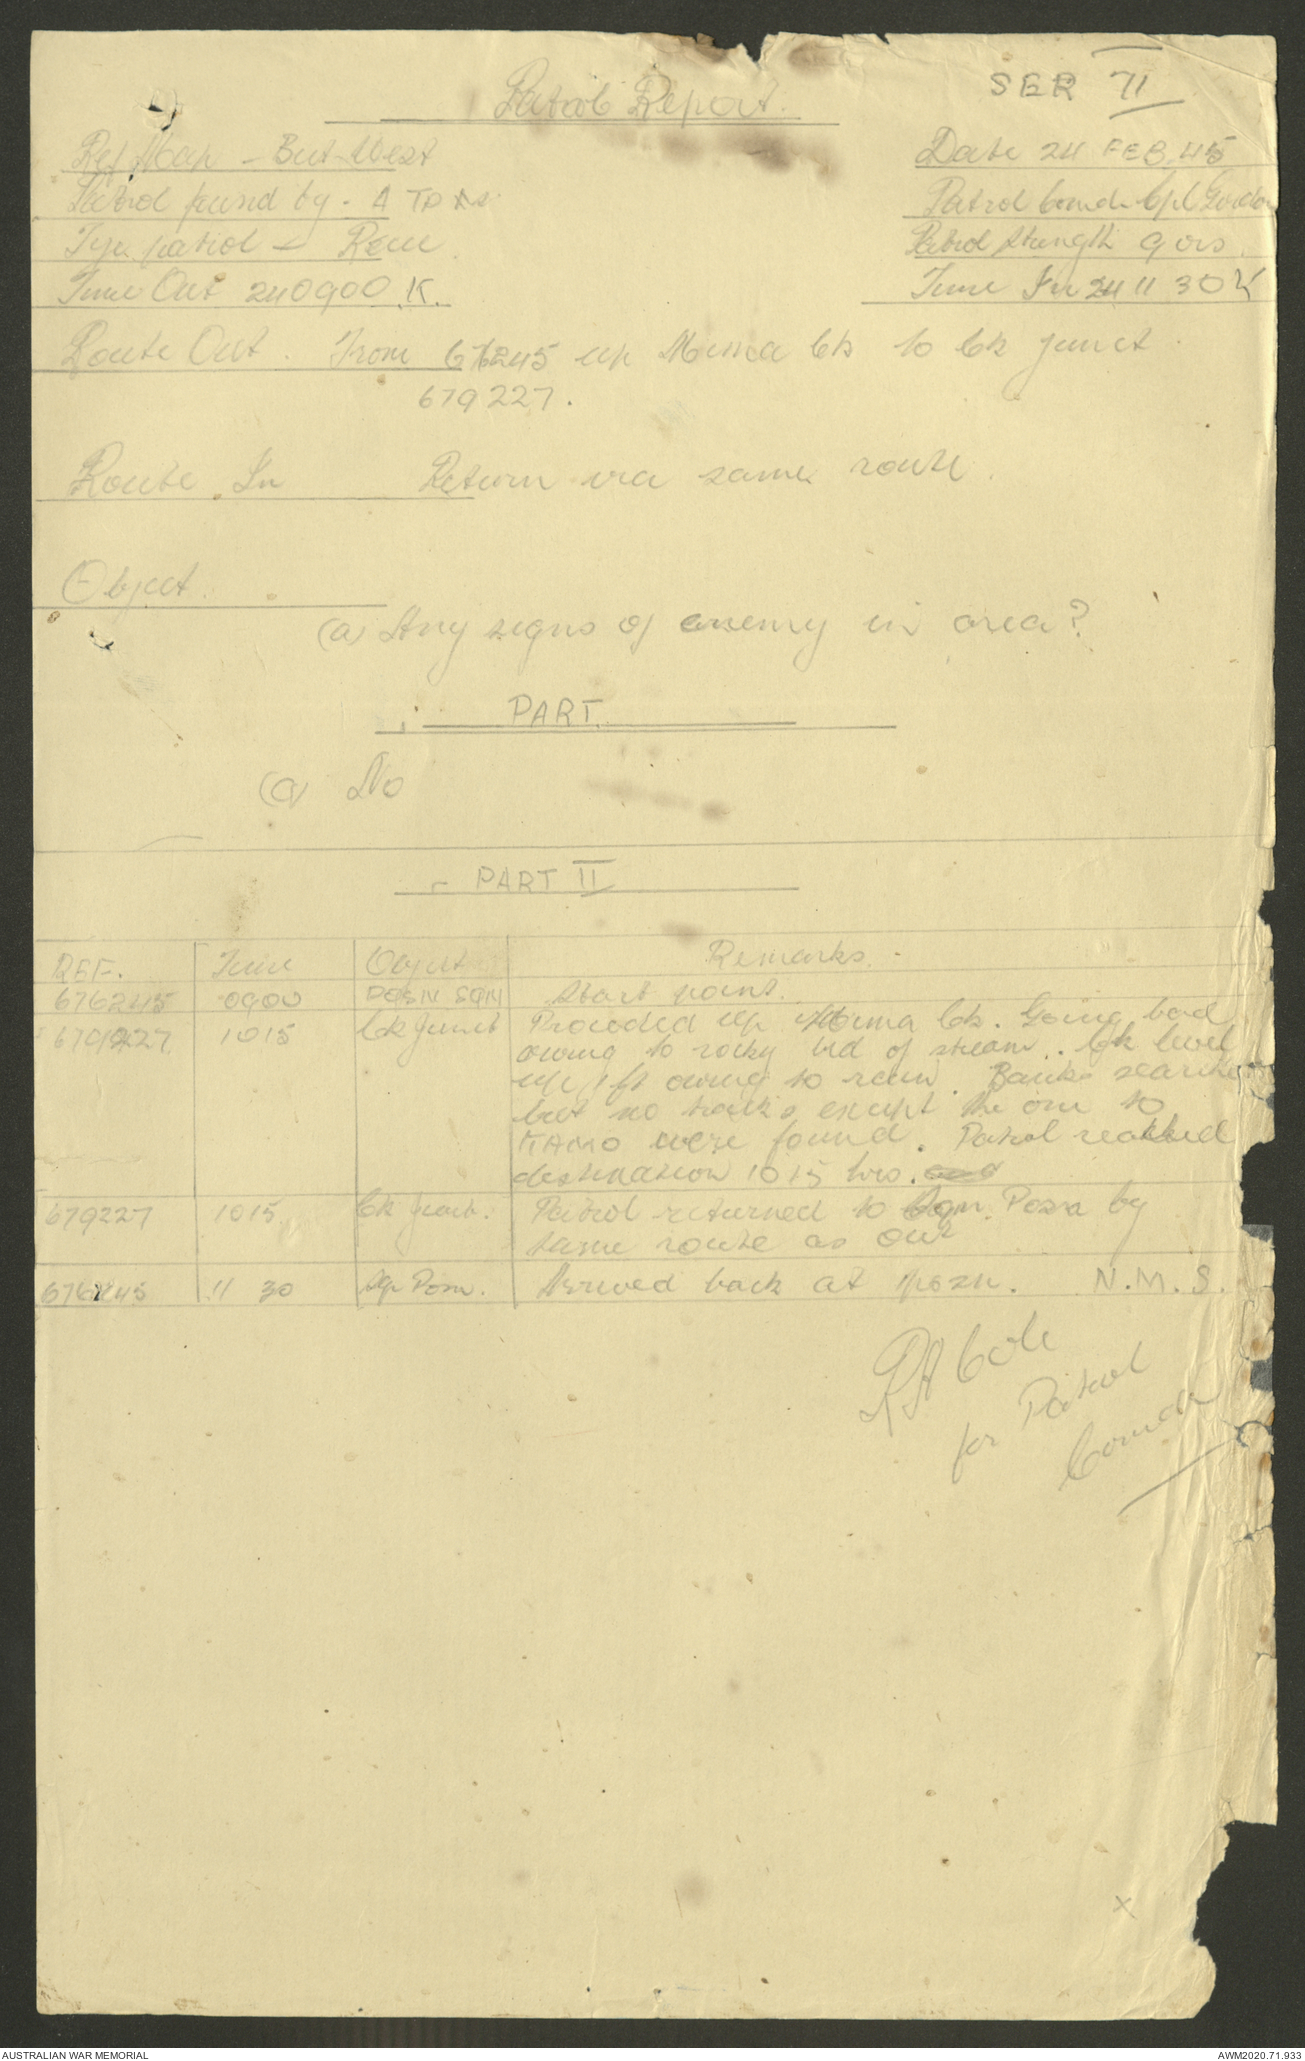 SER 71
Patrol Report.
Ref Map - But West
Date 24 FEB 45
Patrol found by - A TP
Patrol Comdr Cpl Gordon
Type patrol - Recce
Patrol Strength 9 ors
Time Out 240900 K.
Time In 241130K
Route Out. From 676245 up Mima Ck to Ck junct
679227.
Route In Return via same route.
Object.
(a) Any signs of enemy in area?
PART
(a) No
PART II
REF. Time Object Remarks.
676245 0900 POSN SQN Start point.
679227 1015 Ck junct Proceded up Mima Ck. Going bad
owing to rocky bed of stream. Ck level
up 1ft owing to rain. Banks searched
but no tracks except the one to
KAMO were found. Patrol reached
destination 1015 hrs.
679227 1015 Ck junct. Patrol returned to Sqn. Posn by
same route as out
676245 11 30 Sqn Posn. Arrived back at posn. N.M.S.
RA Cole
for Patrol
Comdr
x
AUSTRALIAN WAR MEMORIAL
AWM2020.71.933